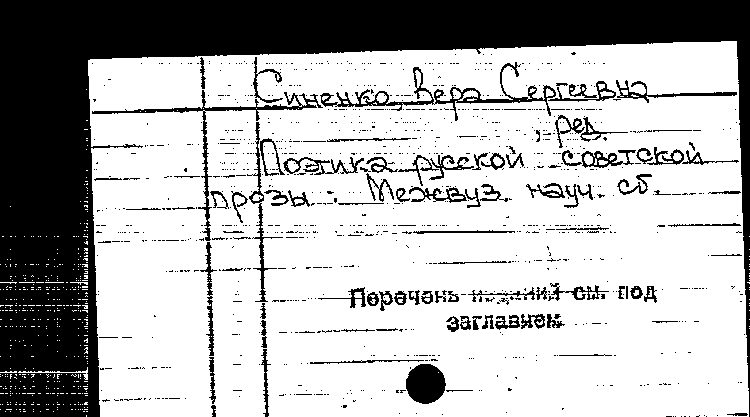 Синенко, Вера Сергеевна
, ред.
Поэтика русской советской
прозы : Межвуз. науч. сб.
Перечень изданий см. под
заглавием